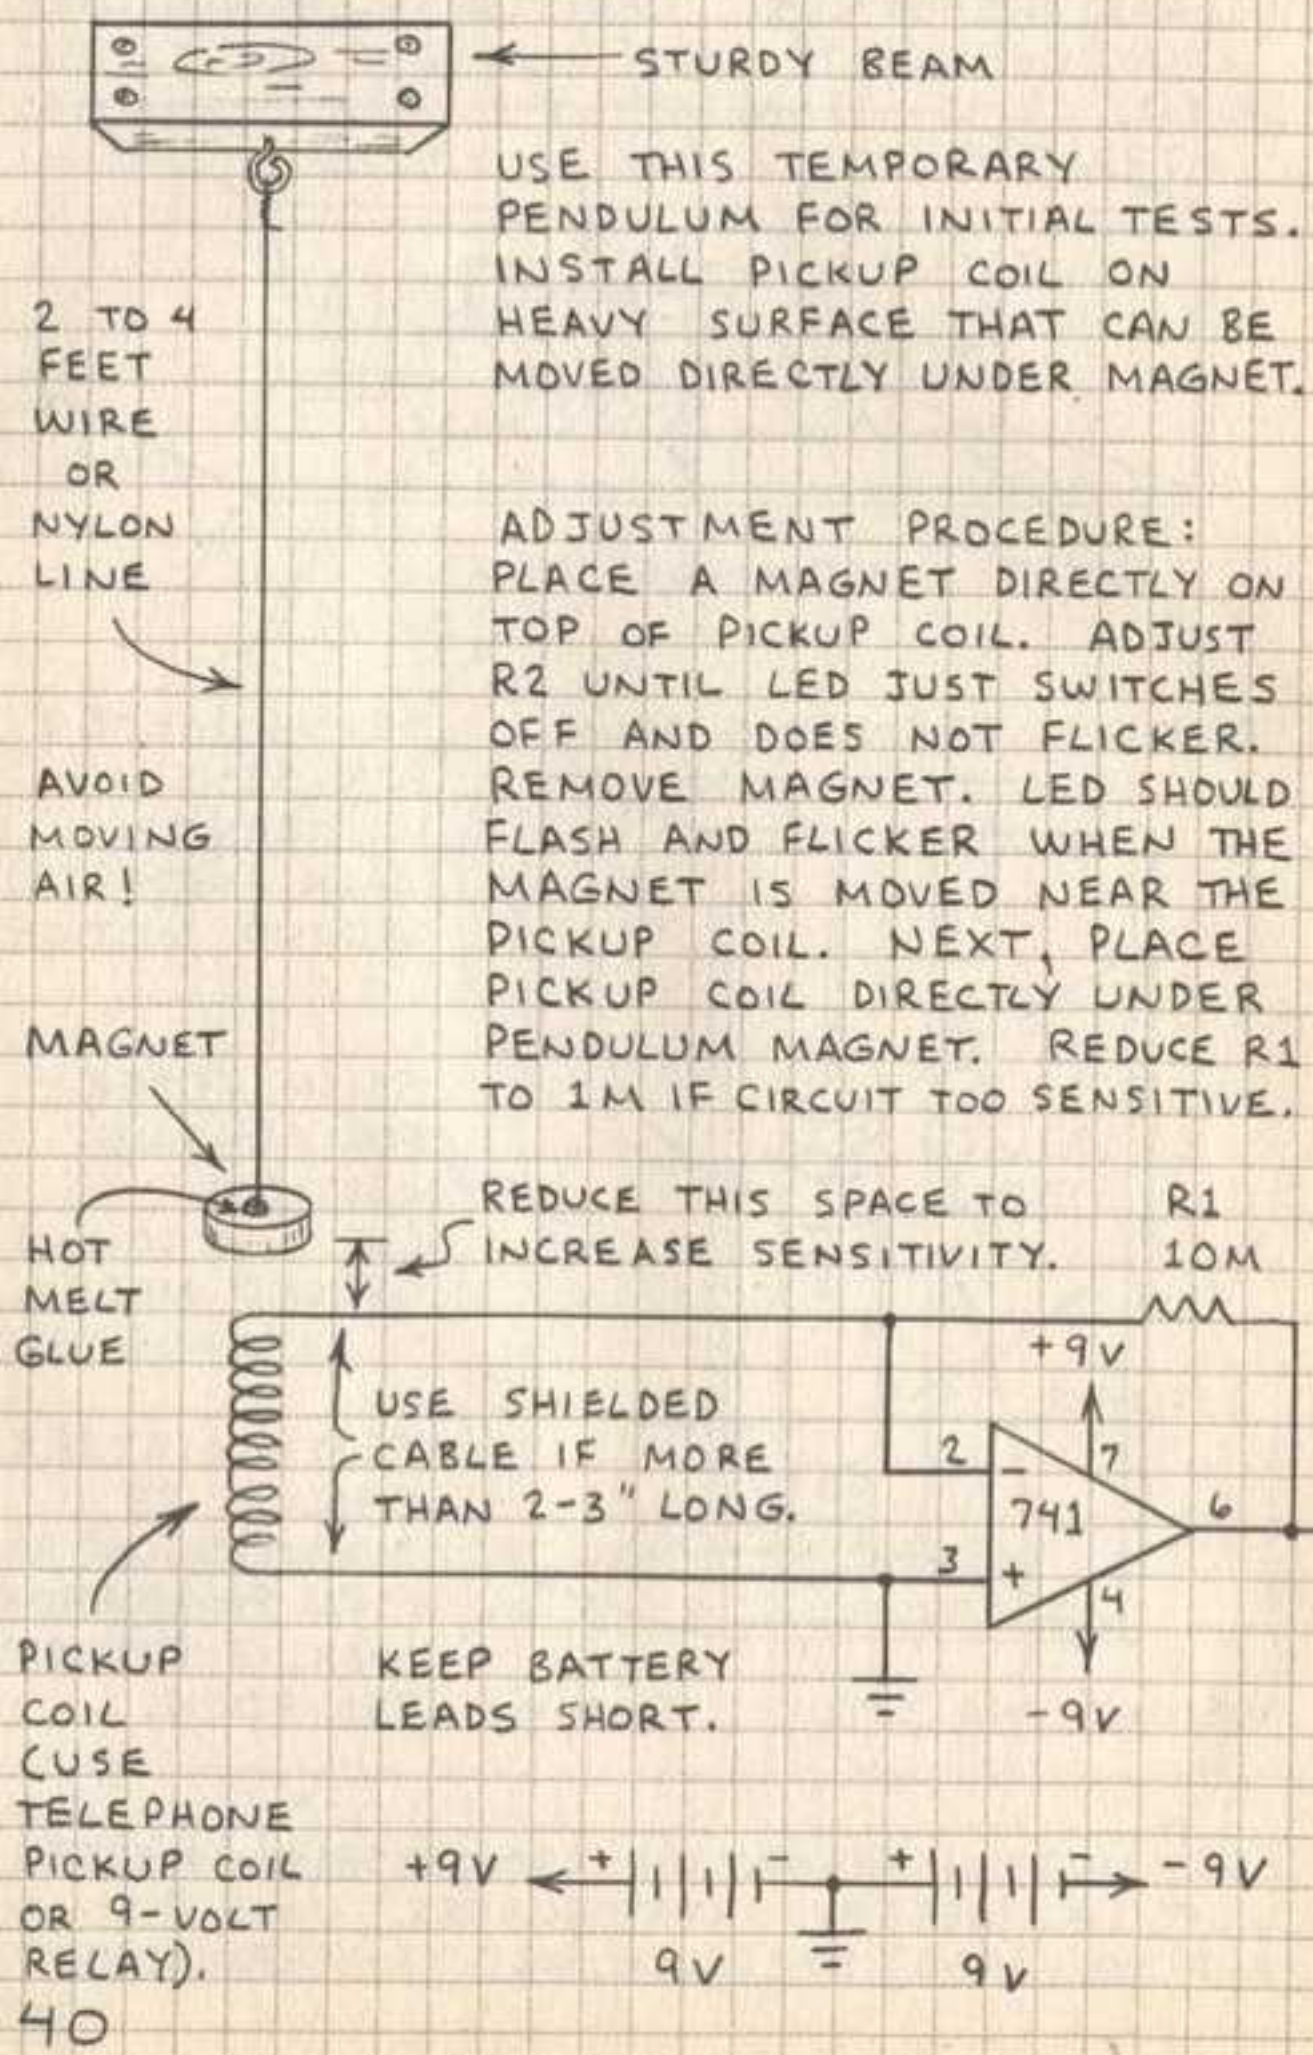 STURDY BEAM
USE THIS TEMPORARY
PENDULUM FOR INITIAL TESTS.
INSTALL PICKUP COIL ON
HEAVY SURFACE THAT CAN BE
MOVED DIRECTLY UNDER MAGNET.
2 TO 4
FEET
WIRE
OR
NYLON
LINE
ADJUSTMENT PROCEDURE:
PLACE A MAGNET DIRECTLY ON
TOP OF PICKUP COIL. ADJUST
R2 UNTIL LED JUST SWITCHES
OFF AND DOES NOT FLICKER.
REMOVE MAGNET. LED SHOULD
FLASH AND FLICKER WHEN THE
MAGNET IS MOVED NEAR THE
PICKUP COIL. NEXT, PLACE
PICKUP COIL DIRECTLY UNDER
PENDULUM MAGNET. REDUCE R1
TO 1M IF CIRCUIT TOO SENSITIVE.
AVOID
MOVING
AIR!
MAGNET
HOT
MELT
GLUE
REDUCE THIS SPACE TO
INCREASE SENSITIVITY.
R1
10M
+9V
USE SHIELDED
CABLE IF MORE
THAN 2-3" LONG.
2
-
7
741
6
3
+
4
-9V
PICKUP
COIL
(USE
TELEPHONE
PICKUP COIL
OR 9-VOLT
RELAY).
KEEP BATTERY
LEADS SHORT.
+9V + - + - -9V
9V 9V
40